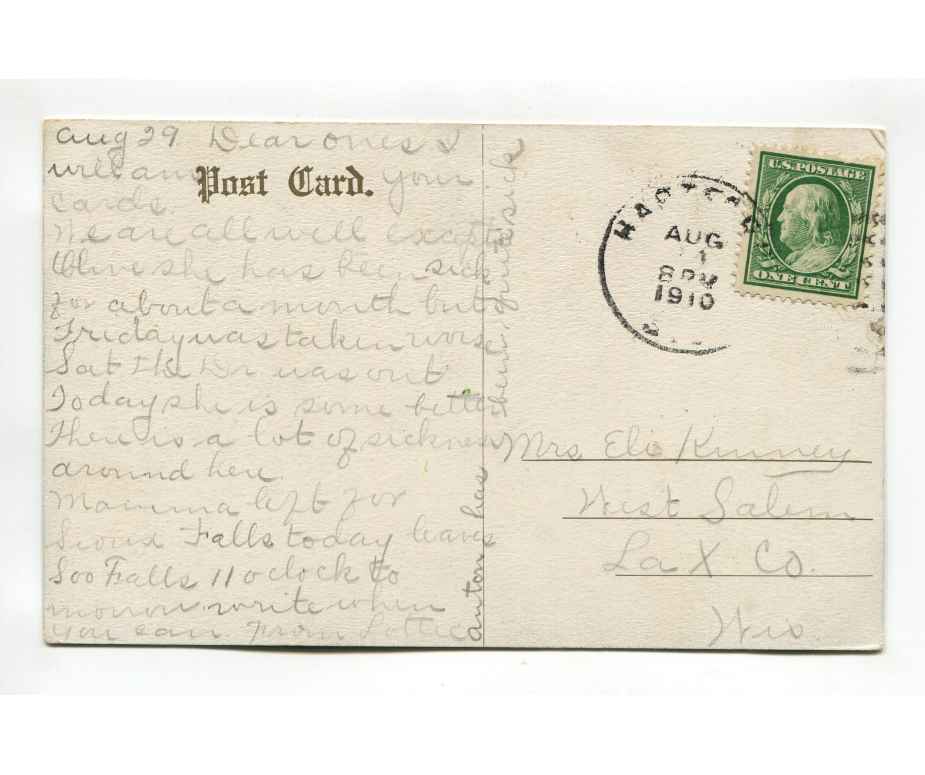 Aug 29 Dear ones I
will ans your
Post Card.
cards.
We are all well except
Olive she has been sick
for about a month but
Friday was taken worse
Sat the Dr was out
Today she is some better
There is a lot of sickness
around here.
Mamma left for
Sioux Falls today leaves
Soo Falls 11 oclock to
morrow. write when
you can. From Lottie
anton has
been sick
U.S. POSTAGE
ONE CENT
AUG
8 PM
1910
Mrs Eli Kinney
West Salem
La X Co.
Wis.